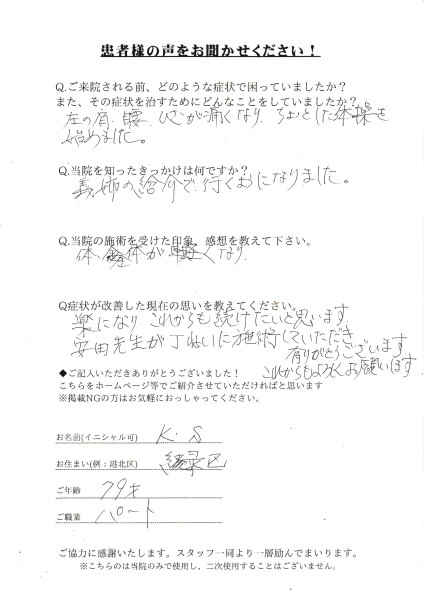 患者様の声をお聞かせください！
Q.ご来院される前、どのような症状で困っていましたか？
また、その症状を治すためにどんなことをしていましたか？
左の肩、腰、ひざが痛くなり、ちょっとした体操を
始めました。
Q.当院を知ったきっかけは何ですか？
義姉の紹介で、行くおになりました。
Q.当院の施術を受けた印象、感想を教えて下さい。
体全体が軽くなり
Q症状が改善した現在の思いを教えてください。
楽になり、これからも続けたいと思います。
安田先生が丁ねいに施術していただき
有りがとうございます
これからもよろしくお願います
◆ご記入いただきありがとうございました！
こちらをホームページ等でご紹介させていただければと思います
※掲載NGの方はお気軽におっしゃってください。
お名前(イニシャル可) K.S
お住まい(例：港北区) 緑区
ご年齢 79才
ご職業 パート
ご協力に感謝いたします。スタッフ一同より一層励んでまいります。
※こちらのは当院のみで使用し、二次使用することはございません。